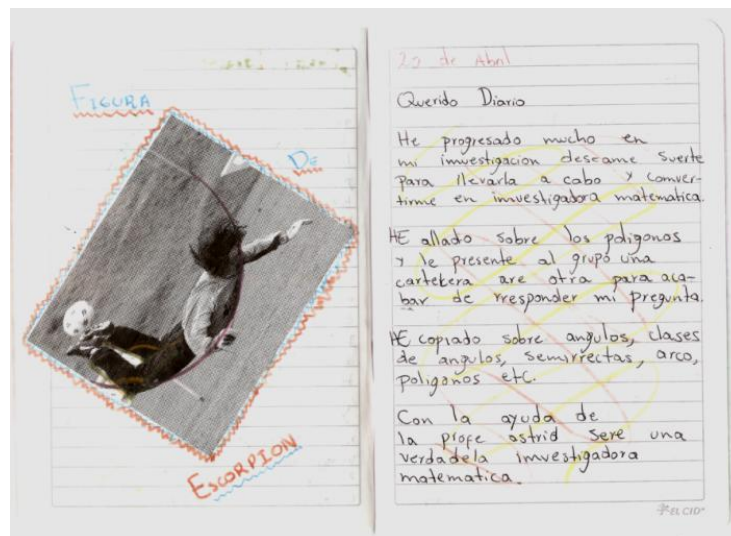 FIGURA
DE
ESCORPION
25 de Abril
Querido Diario
He progresado mucho en
mi imvestigacion deseame suerte
para llevarla a cabo y comver-
tirme en imvestigadora matematica.
HE allado sobre los poligonos
y le presente al grupo una
cartekera are otra para aca-
bar de rresponder mi pregunta.
HE copiado sobre angulos, clases
de angulos, semirrectas, arco,
poligonos etc.
Con la ayuda de
la profe astrid sere una
verdadela imvestigadora
matematica.
EL CID